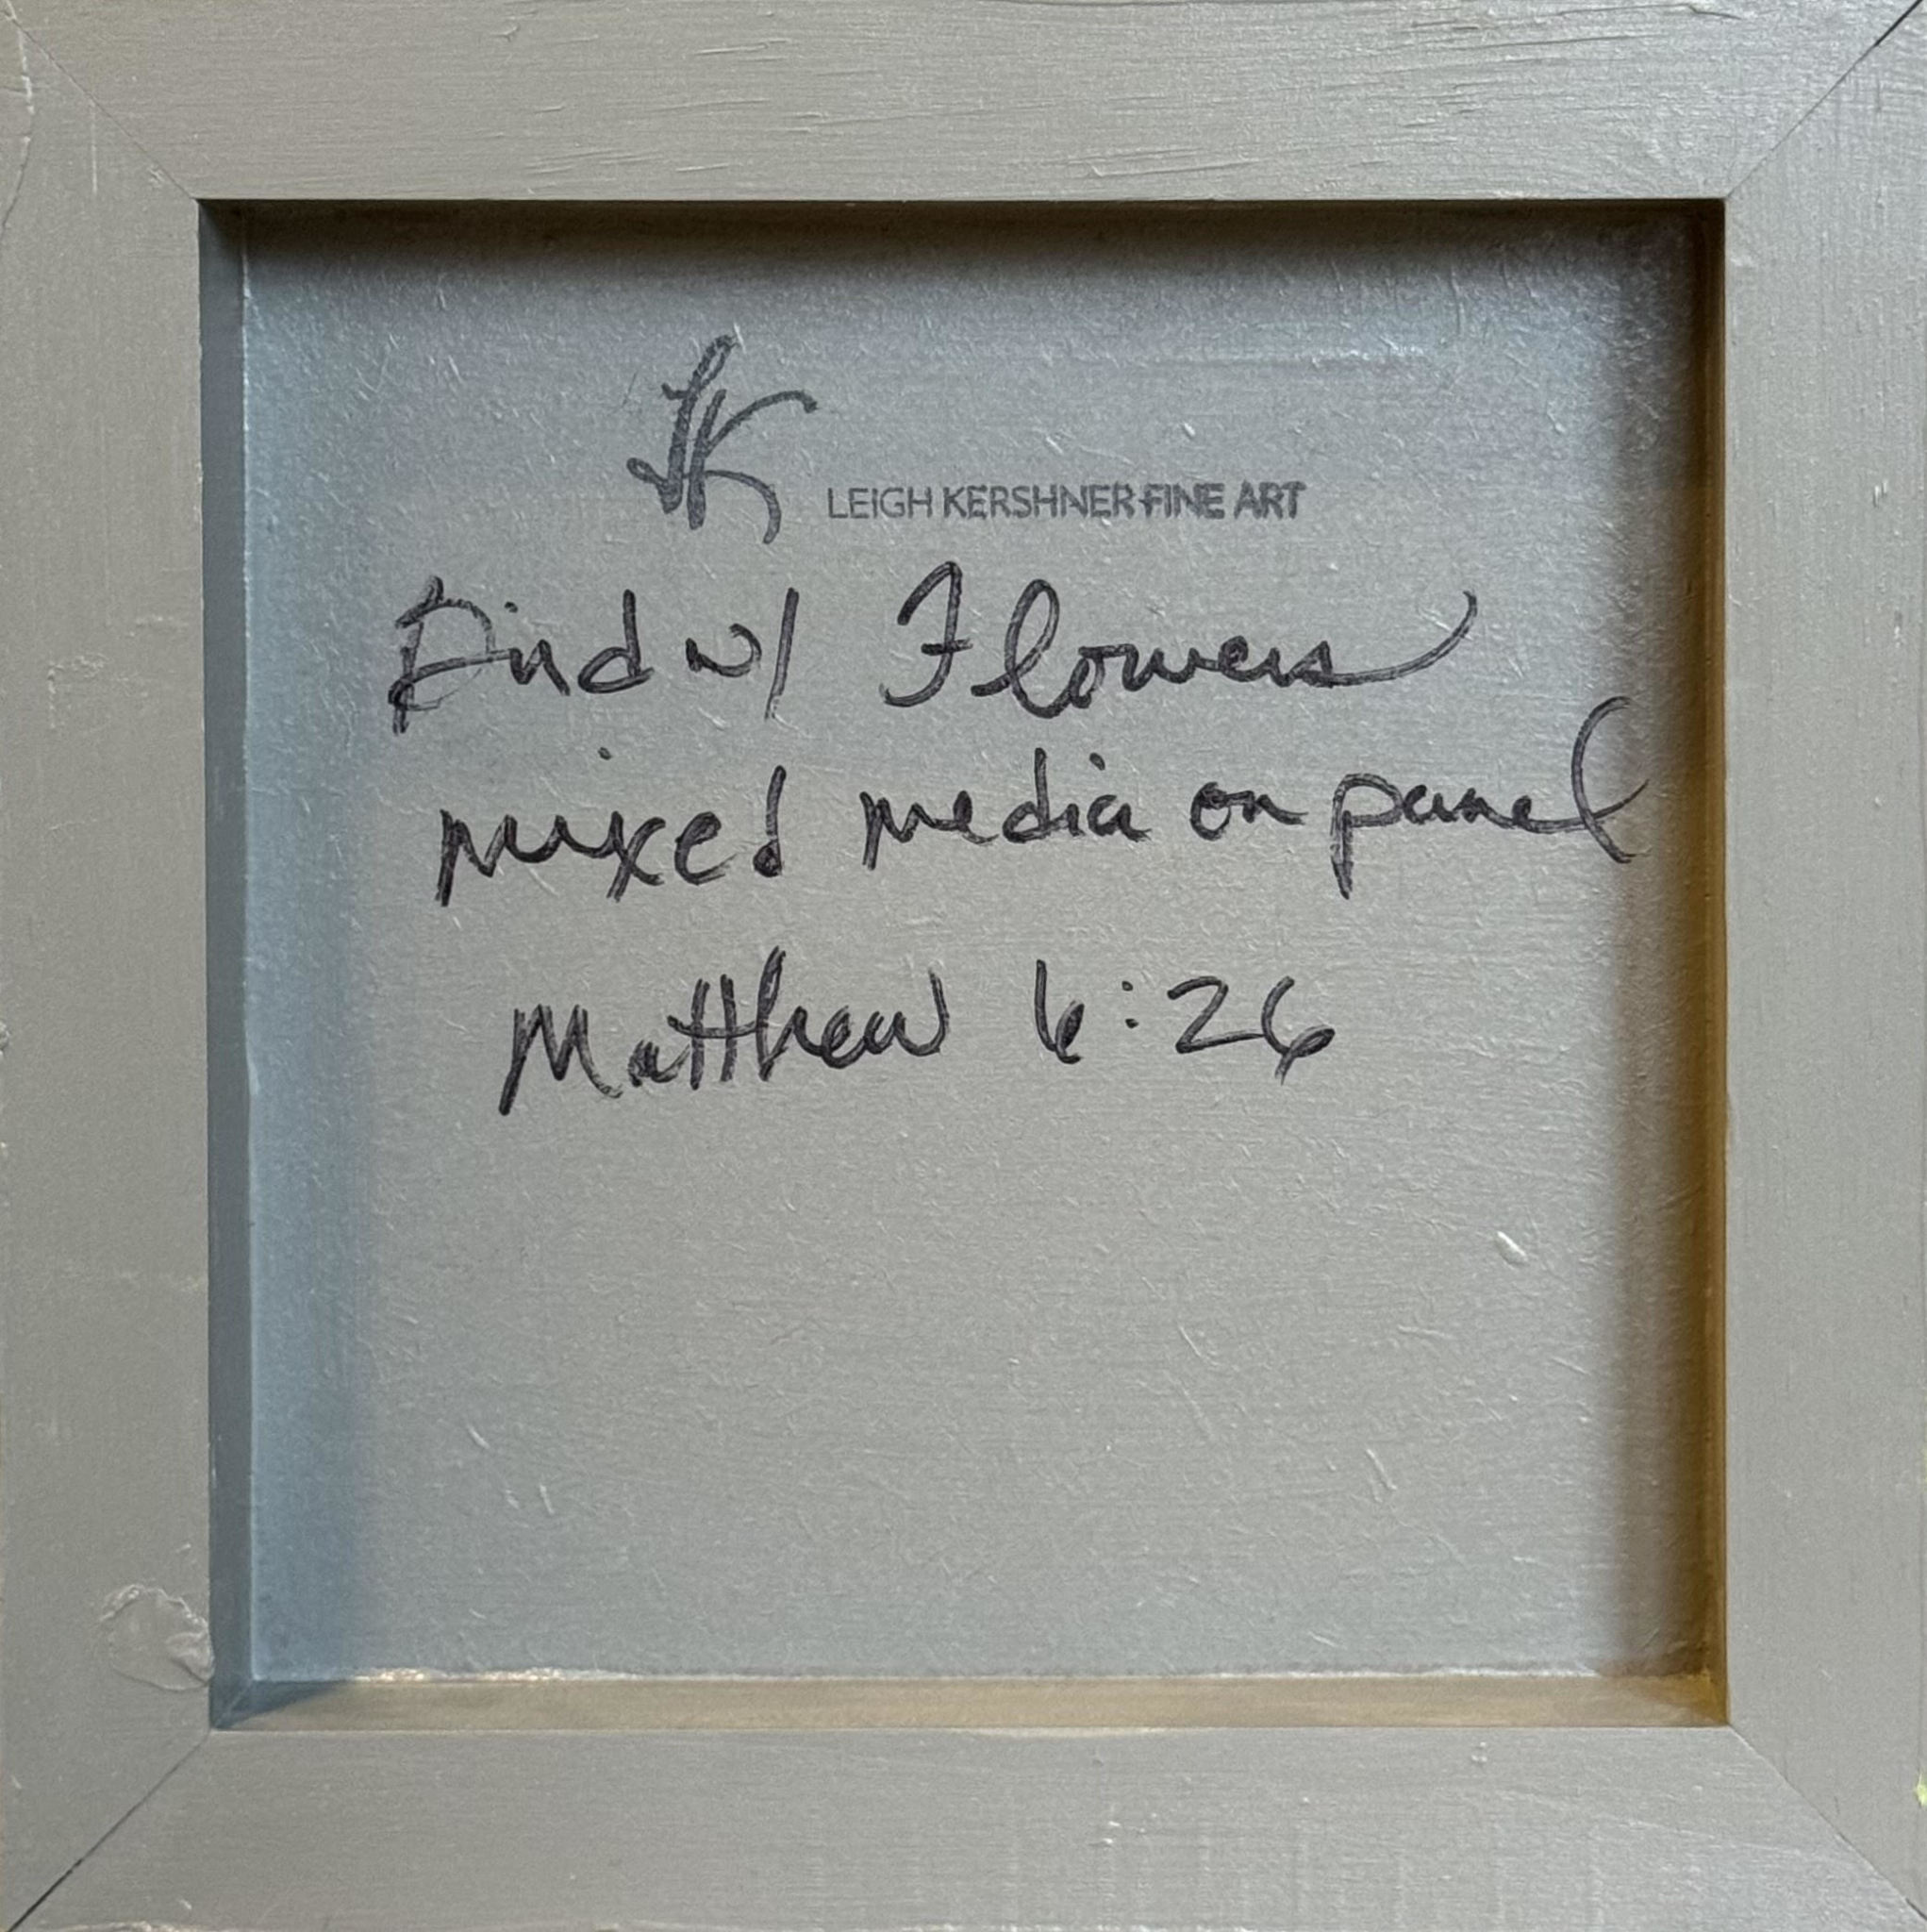 LK LEIGH KERSHNER FINE ART
Bird w/ Flowers
mixed media on panel
Matthew 6:26